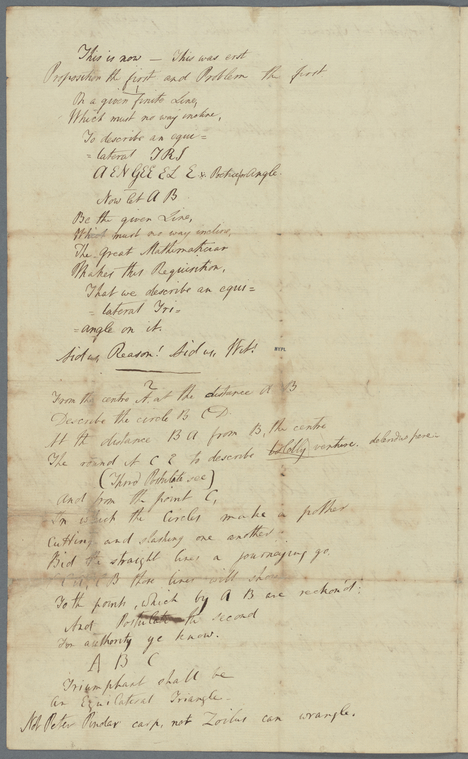 This is now — This was erst
Proposition the first and Problem the first
1
On a given finite Line,
Which must no way incline,
To describe an equi=
=lateral TRI
A EN GEE EL E &
Now let A B
Be the given Line,
Which must no way incline,
The Great Mathematician
Makes this Requisition,
That we describe an equi=
=lateral Tri=
=angle on it.
Aid us, Reason! Aid us, Wit!
2
From the centre A. at the distance A B
Describe the circle B C D
At the distance B A from B, the centre
The round A C E to describe boldly venture.
(Third Postulate see)
And from the point C,
In which the Circles make a pother
Cutting and slashing one another
Bid the straight lines a journeying go
C A, C B those lines will show
To the points, which by A B are reckon'd;
And Postulate the second
For authority ye know.
A B C
Triumphant shall be
An Equilateral Triangle.
Not Peter Pindar carp, not Zoilus can wrangle.